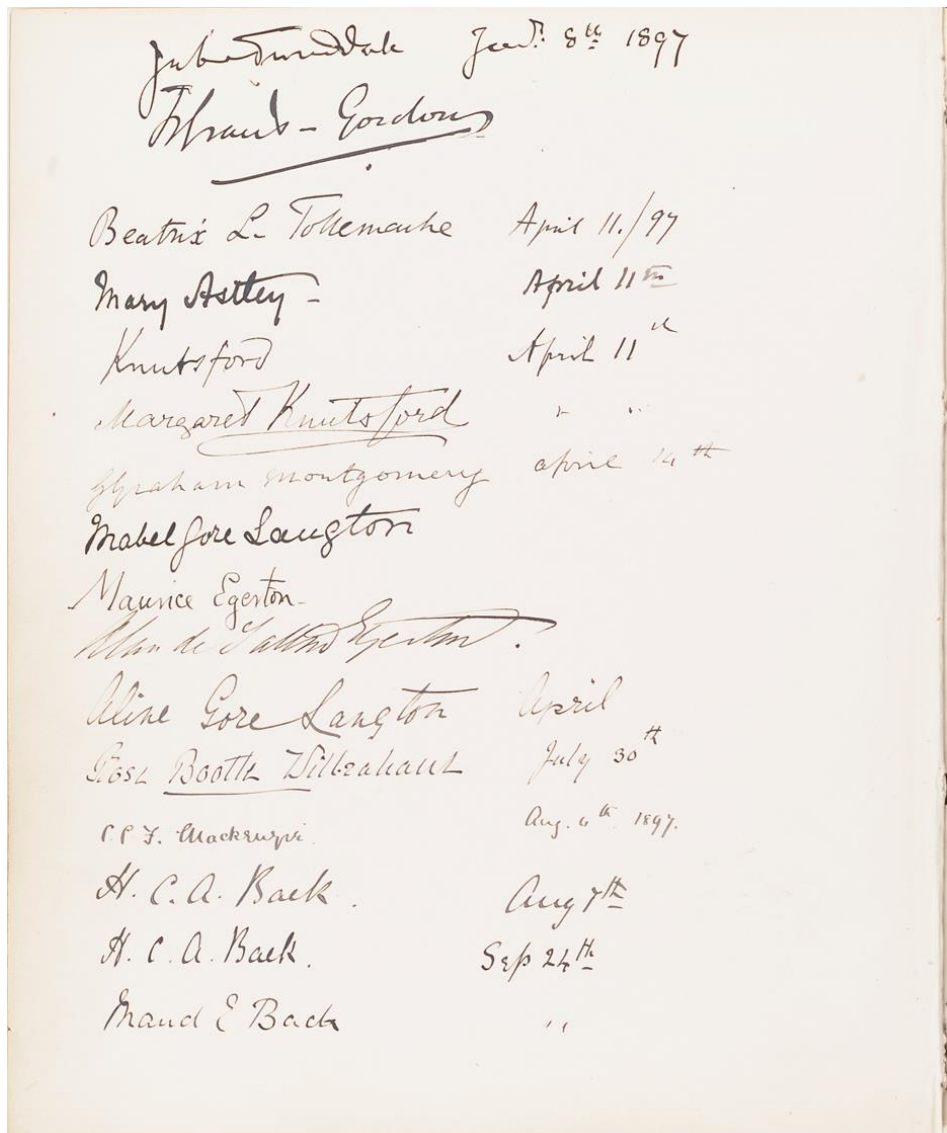 Julia Tweeddale Jan. 8th 1897
Evans-Gordon
Beatrix L. Tollemache April 11./97
Mary Astley - April 11th
Knutsford April 11th
Margaret Knutsford " "
Graham Montgomery april 14th
Mabel Gore Langton
Maurice Egerton
Alan de Tatton Egerton.
Aline Gore Langton April
Rose Bootle Wilbraham July 30th
F. Mackenzie. Aug. 6th 1897.
H. C. A. Back. Aug 7th
H. C. A. Back. Sep 24th
Maud E Back "